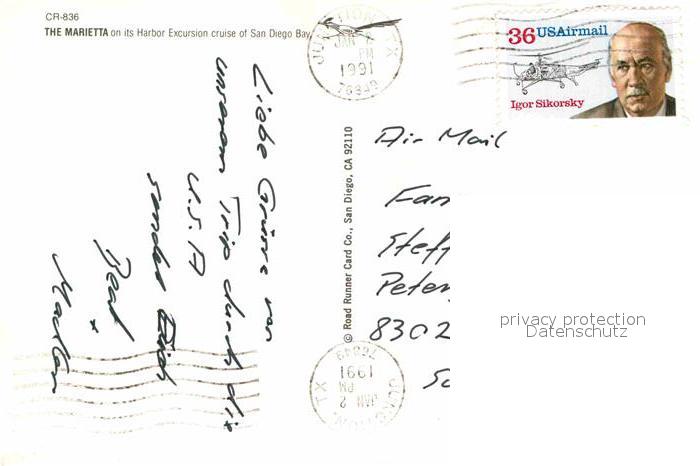 CR-836
THE MARIETTA on its Harbor Excursion cruise of San Diego Bay.
JUNCTION TX
JAN 2
PM
1991
76849
36 USAirmail
Igor Sikorsky
Liebe Grüsse von
unserem Trip durch die
U.S.A
senden Euch
Beat +
Marlen
© Road Runner Card Co., San Diego, CA 92110
Air Mail
Fam
Steff
Peter
8302
privacy protection
Datenschutz
JUNCTION TX
JAN 2
PM
1991
76849